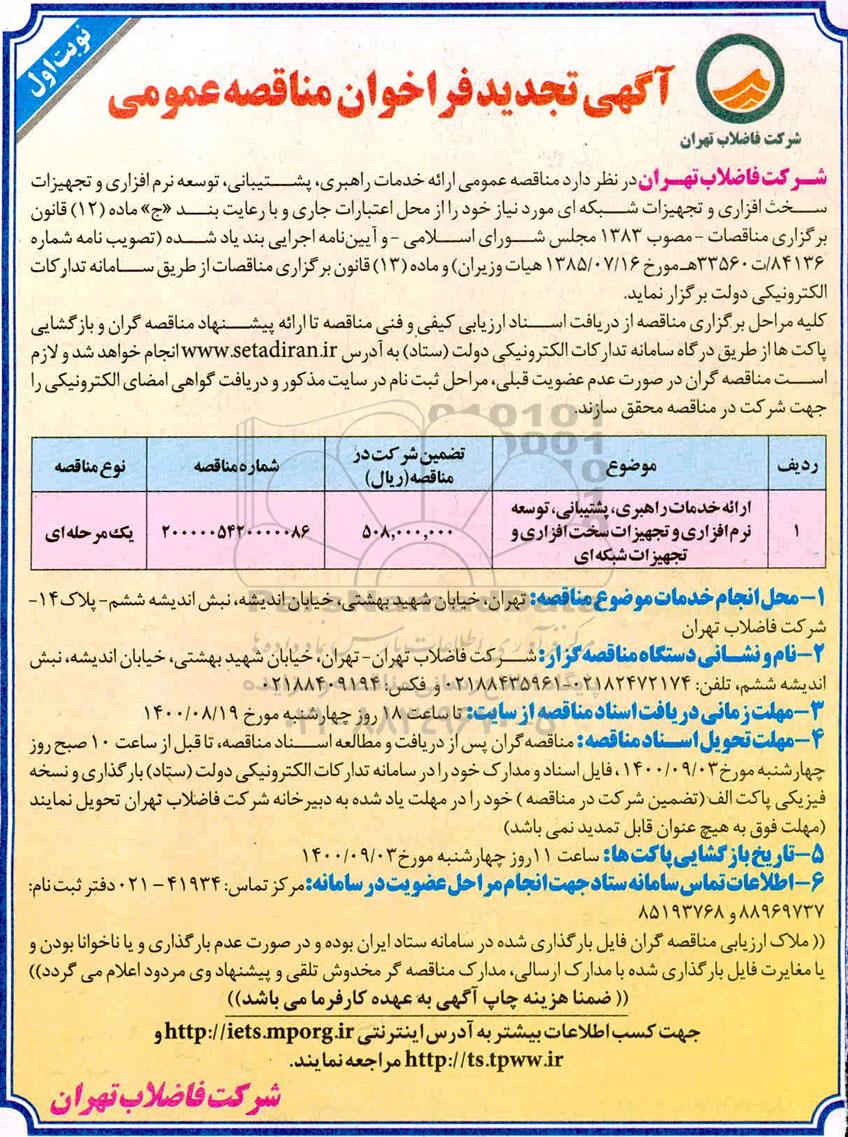 نوبت اول
آگهی تجدید فراخوان مناقصه عمومی
شرکت فاضلاب تهران
شرکت فاضلاب تهران در نظر دارد مناقصه عمومی ارائه خدمات راهبری، پشتیبانی، توسعه نرم افزاری و تجهیزات
سخت افزاری و تجهیزات شبکه ای مورد نیاز خود را از محل اعتبارات جاری و با رعایت بند «ج» ماده (۱۲) قانون
برگزاری مناقصات - مصوب ۱۳۸۳ مجلس شورای اسلامی - و آیین‌نامه اجرایی بند یاد شده (تصویب نامه شماره
۸۴۱۳۶/ت ۳۳۵۶۰هـ مورخ ۱۳۸۵/۰۷/۱۶ هیات وزیران) و ماده (۱۳) قانون برگزاری مناقصات از طریق سامانه تدارکات
الکترونیکی دولت برگزار نماید.
کلیه مراحل برگزاری مناقصه از دریافت اسناد ارزیابی کیفی و فنی مناقصه تا ارائه پیشنهاد مناقصه گران و بازگشایی
پاکت ها از طریق درگاه سامانه تدارکات الکترونیکی دولت (ستاد) به آدرس www.setadiran.ir انجام خواهد شد و لازم
است مناقصه گران در صورت عدم عضویت قبلی، مراحل ثبت نام در سایت مذکور و دریافت گواهی امضای الکترونیکی را
جهت شرکت در مناقصه محقق سازند.
ردیف موضوع تضمین شرکت در مناقصه (ریال) شماره مناقصه نوع مناقصه
۱ ارائه خدمات راهبری، پشتیبانی، توسعه نرم افزاری و تجهیزات سخت افزاری و تجهیزات شبکه ای ۵۰۸,۰۰۰,۰۰۰ ۲۰۰۰۰۰۵۴۲۰۰۰۰۰۸۶ یک مرحله ای
۱- محل انجام خدمات موضوع مناقصه: تهران، خیابان شهید بهشتی، خیابان اندیشه، نبش اندیشه ششم- پلاک ۱۴-
شرکت فاضلاب تهران
۲- نام و نشانی دستگاه مناقصه گزار: شرکت فاضلاب تهران - تهران، خیابان شهید بهشتی، خیابان اندیشه، نبش
اندیشه ششم، تلفن: ۰۲۱۸۲۴۷۲۱۷۴-۰۲۱۸۸۴۳۵۹۶۱ و فکس: ۰۲۱۸۸۴۰۹۱۹۴
۳- مهلت زمانی دریافت اسناد مناقصه از سایت: تا ساعت ۱۸ روز چهارشنبه مورخ ۱۴۰۰/۰۸/۱۹
۴- مهلت تحویل اسناد مناقصه: مناقصه گران پس از دریافت و مطالعه اسناد مناقصه، تا قبل از ساعت ۱۰ صبح روز
چهارشنبه مورخ ۱۴۰۰/۰۹/۰۳، فایل اسناد و مدارک خود را در سامانه تدارکات الکترونیکی دولت (ستاد) بارگذاری و نسخه
فیزیکی پاکت الف (تضمین شرکت در مناقصه) خود را در مهلت یاد شده به دبیرخانه شرکت فاضلاب تهران تحویل نمایند
(مهلت فوق به هیچ عنوان قابل تمدید نمی باشد)
۵- تاریخ بازگشایی پاکت ها: ساعت ۱۱ روز چهارشنبه مورخ ۱۴۰۰/۰۹/۰۳
۶- اطلاعات تماس سامانه ستاد جهت انجام مراحل عضویت در سامانه: مرکز تماس: ۴۱۹۳۴ - ۰۲۱ دفتر ثبت نام:
۸۸۹۶۹۷۳۷ و ۸۵۱۹۳۷۶۸
(( ملاک ارزیابی مناقصه گران فایل بارگذاری شده در سامانه ستاد ایران بوده و در صورت عدم بارگذاری و یا ناخوانا بودن و
یا مغایرت فایل بارگذاری شده با مدارک ارسالی، مدارک مناقصه گر مخدوش تلقی و پیشنهاد وی مردود اعلام می گردد))
(( ضمنا هزینه چاپ آگهی به عهده کارفرما می باشد))
جهت کسب اطلاعات بیشتر به آدرس اینترنتی http://iets.mporg.ir و
http://ts.tpww.ir مراجعه نمایند.
شرکت فاضلاب تهران